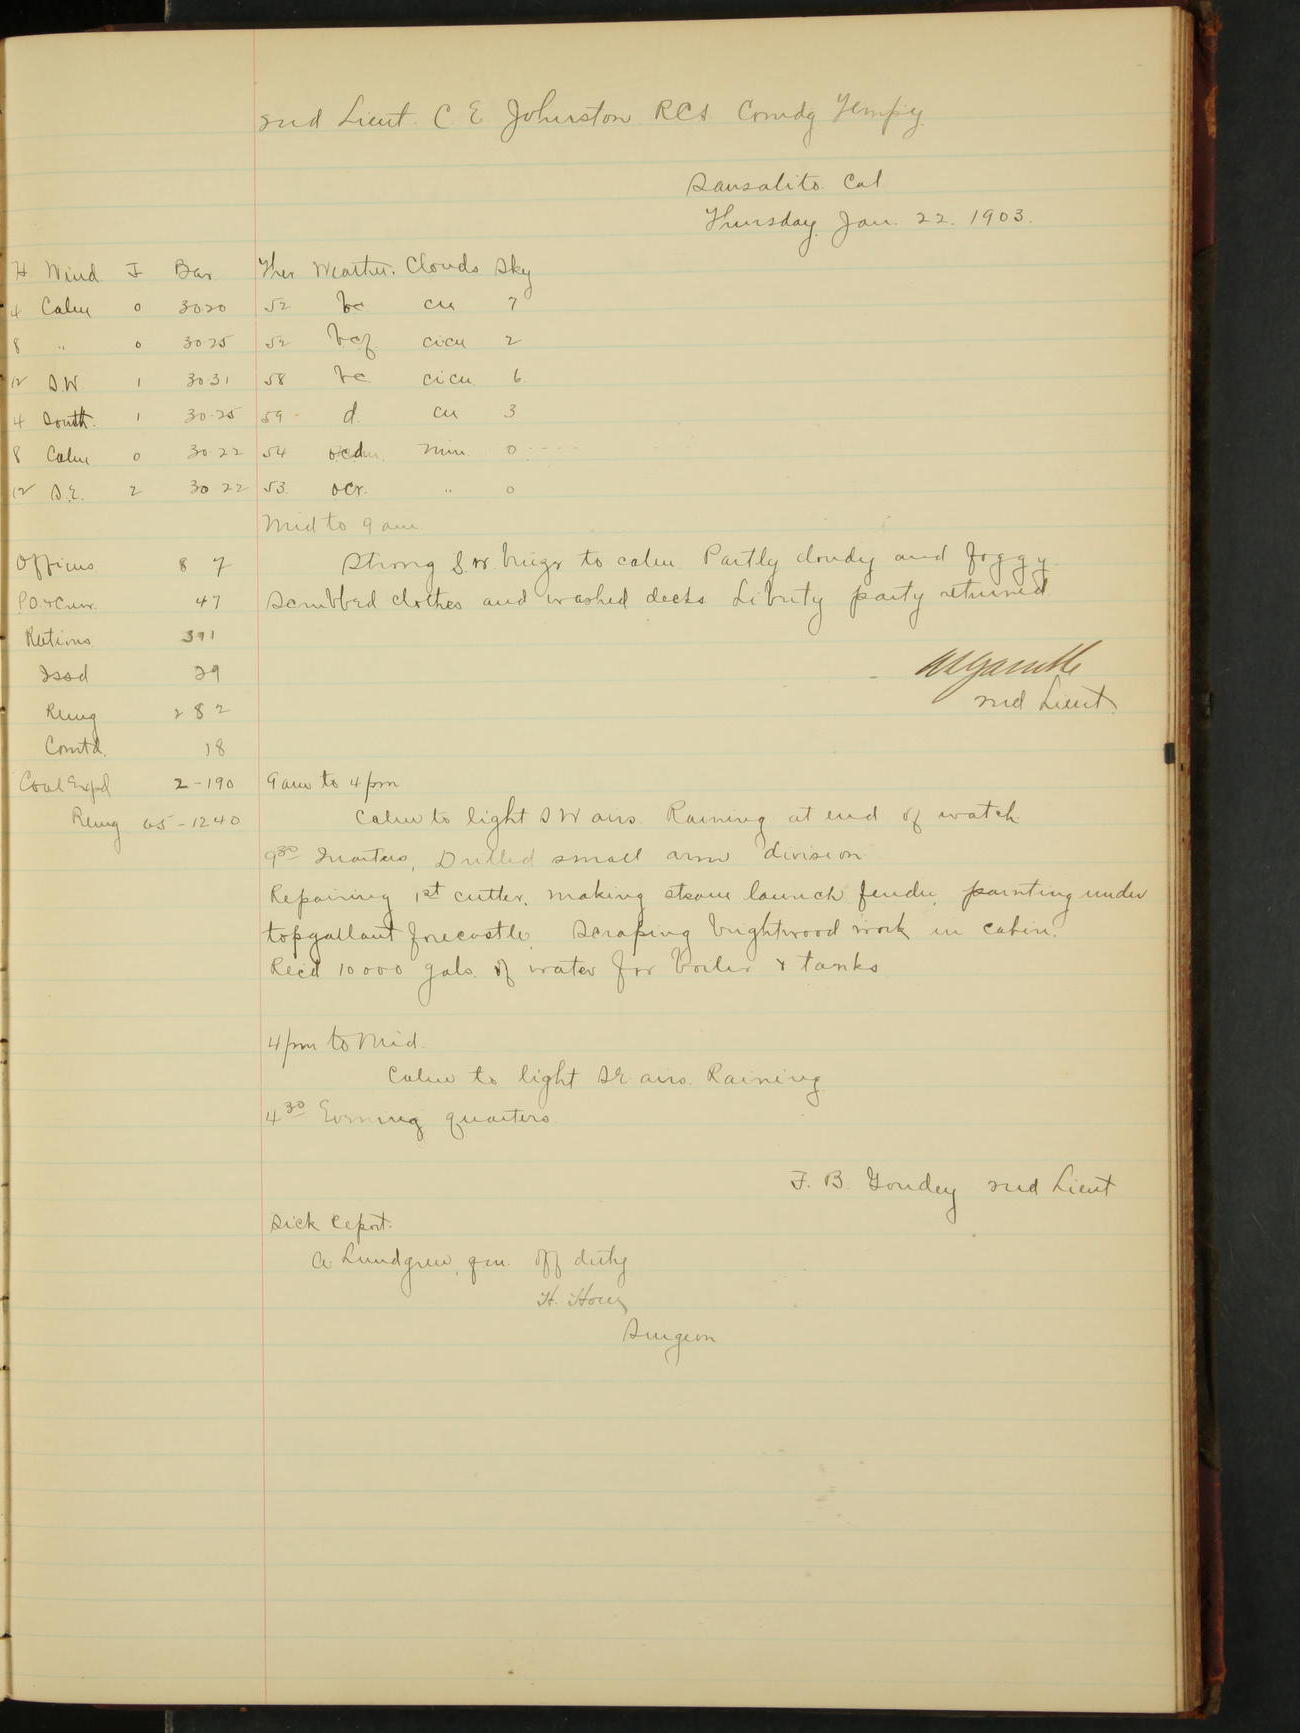 2nd Lieut. C E Johnston RCS Comdg Temp'y
Sausalito Cal
Thursday Jan. 22. 1903.
H Wind F Bar Ther Weather. Clouds Sky
4 Calm 0 3020 52 bc cu 7
8 " 0 30 25 52 bcf cicu 2
12 S.W. 1 30 31 58 bc cicu 6
4 South. 1 30.25 59 d. cu 3
8 Calm 0 30 22 54 nim 0
12 S.E. 2 30 22 53. ocr. " 0
Mid to 9 am
Officers 8 7 Strong S.W. brizs to calm Partly cloudy and foggy
P.O. & Crew. 47 Scrubbed clothes and washed decks Liberty party returned
Rations 311
Issd 29
2nd Lieut
Remg 282
Comtd. 18
Coal Expd 2-190 9 am to 4 pm
Remg 65-1240 Calm to light SW airs. Raining at end of watch
9 30 Quarters, Drilled small arm division
Repairing 1st cutter, making steam launch fender, painting under
topgallant forecastle. Scraping brightwood work in cabin.
Rec'd 10000 gals. of water for boiler & tanks
4 pm to Mid.
Calm to light SE airs. Raining
4 30 Evening quarters
F. B. Goudey 2nd Lieut
Sick report.
A Lundgren, qm. off duty
H. Horn
Surgeon